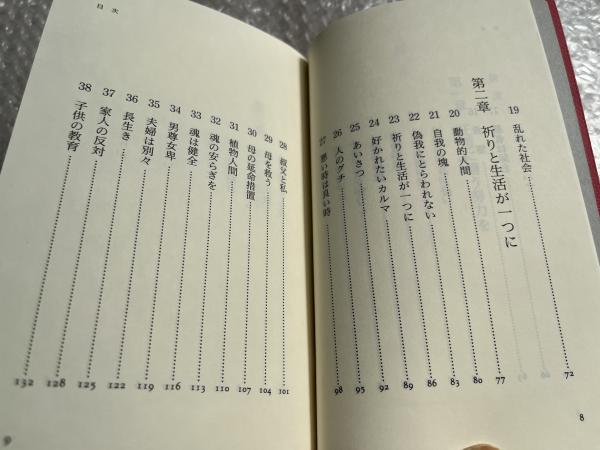 19 乱れた社会 72
第二章 祈りと生活が一つに
20 動物的人間 77
21 自我の塊 80
22 偽我にとらわれない 83
23 祈りと生活が一つに 86
24 好かれたいカルマ 89
25 あいさつ 92
26 人のグチ 95
27 悪い時は良い時 98
8
目次
28 叔父と私 101
29 母を救う 104
30 母の延命措置 107
31 植物人間 110
32 魂の安らぎを 113
33 魂は健全 116
34 男尊女卑 119
35 夫婦は別々 122
36 長生き 125
37 家人の反対 128
38 子供の教育 132
9